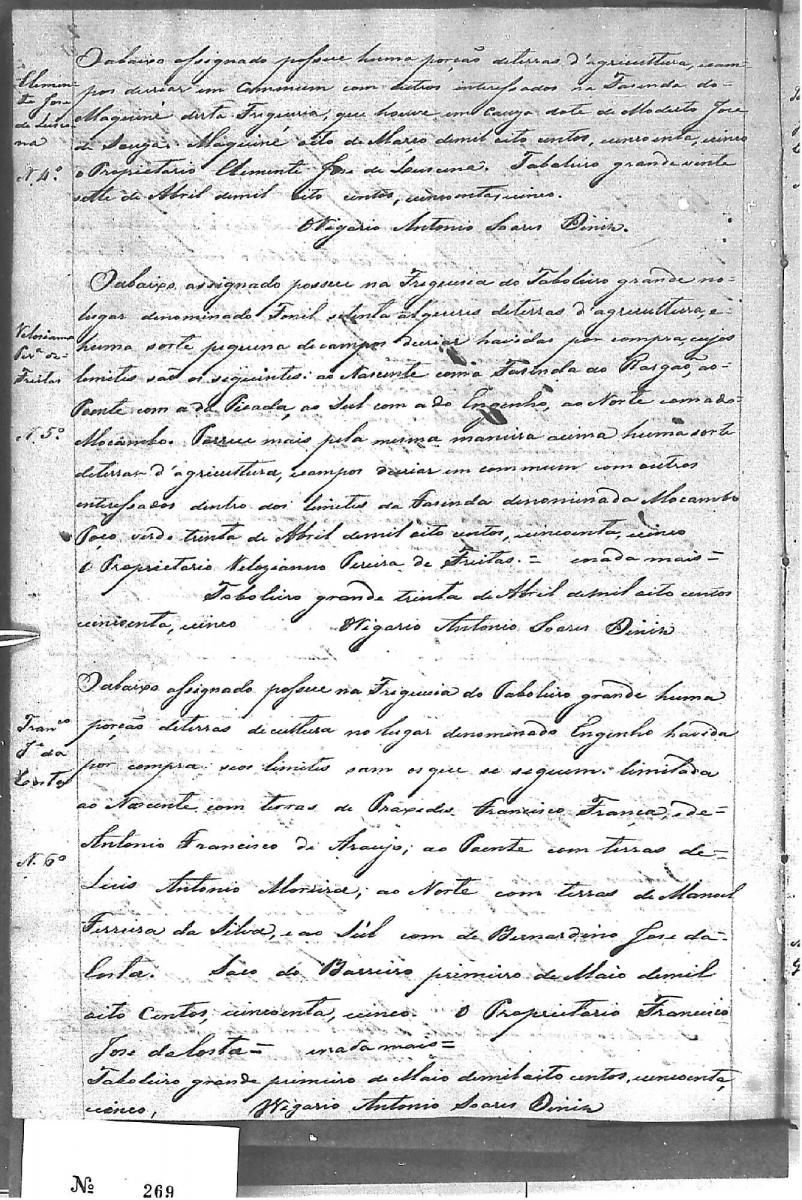 Clemen-
te Jose
de Luce-
na
N. 4º
O abaixo assignado possue huma porção de terras d'agricultura, e cam-
pos de criar em Commum com outros interessados na Fasenda do
Maquiné desta Freguesia, que houve em Cauza dote de Modesto Jose
de Souza. Maquiné oito de Março de mil oito centos, cincoenta, cinco
o Proprietario Clemente Jose de Loucena. Taboleiro grande vente
sette de Abril de mil oito centos, cincoenta, cinco.
O Vigario Antonio Soares Diniz.
Velosianno
Perª de
Freitas
N. 5º
O abaixo assignado possue na Freguesia do Taboleiro grande no
lugar denominado Fonil setenta alqueires de terras d'agricultura, e
huma sorte pequena de campos de criar havidas por compra, cujos
limites são os seguintes: ao Nascente com a Fasenda do Rasgão, ao
Poente com a da Picada, ao Sul com a do Engenho, ao Norte com a do
Mocambo. Possue mais pela mesma maneira acima huma sorte
de terras d'agricultura, e campos de criar em commum com outros
interessados dentro dos limites da Fasenda denominada Mocambo
Poço verde trinta de Abril de mil oito centos, cincoenta, cinco
O Proprietario Velozianno Pereira de Freitas. = e nada mais =
Taboleiro grande trinta de Abril de mil oito centos
cincoenta, cinco O Vigario Antonio Soares Diniz
Franco
Je da
Costa
N. 6º
O abaixo assignado possue na Freguesia do Taboleiro grande huma
porção de terras de cultura no lugar denominado Engenho havida
por compra: seos limites sam os que se seguem: limitada
ao Nascente com terras de Praxedes Francisco França, e de
Antonio Francisco de Araujo; ao Poente com terras de
Luis Antonio Moreira; ao Norte com terras de Manoel
Ferreira da Silva, e ao Sul com de Bernardino Jose da
Costa. Saco do Barreiro primeiro de Maio de mil
oito Centos, cincoenta, cinco. O Proprietario Francisco
Jose da Costa = e nada mais =
Taboleiro grande primeiro de Maio de mil oito centos, cincoenta,
cinco, O Vigario Antonio Soares Diniz
Nº 269